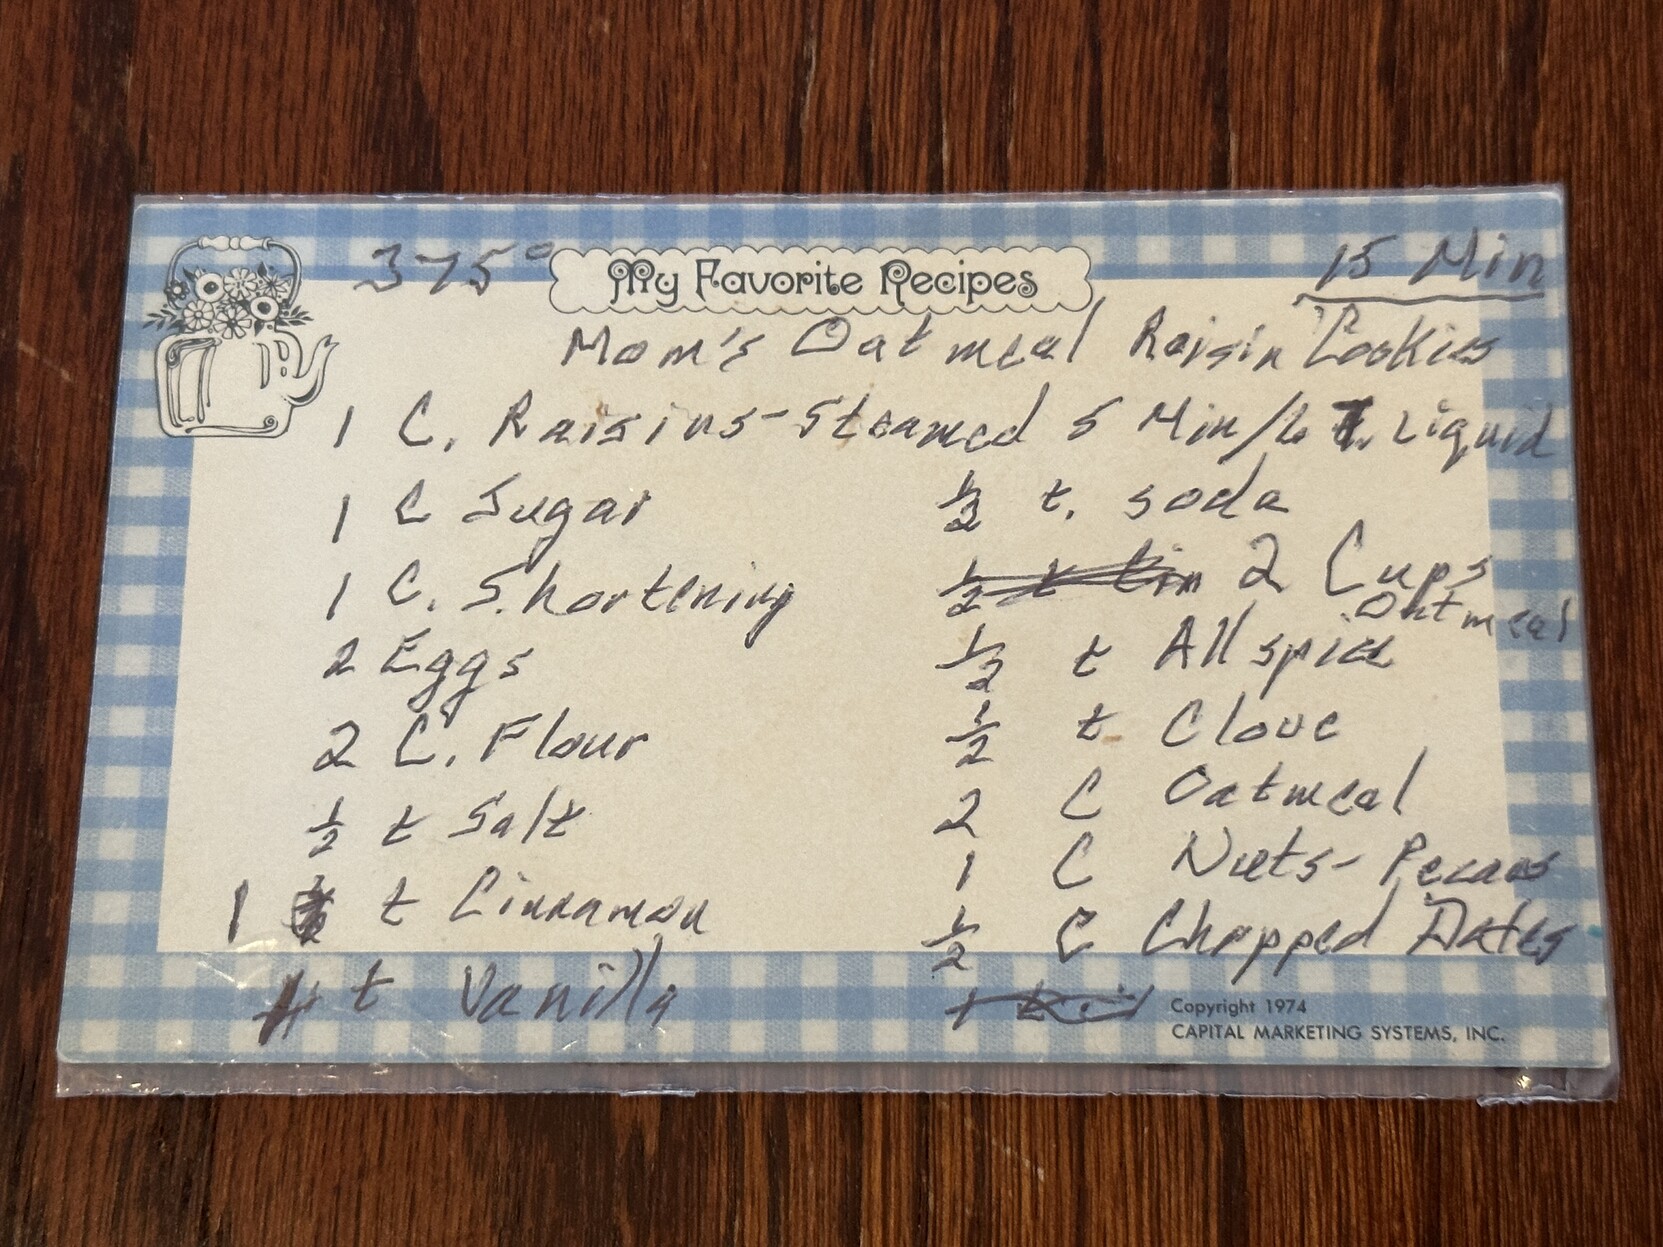 375° My Favorite Recipes 15 Min
Mom's Oatmeal Raisin Cookies
1 C. Raisins-Steamed 5 Min/6 T. Liquid
1 C Sugar
1 C. Shortening
2 Eggs
2 C. Flour
½ t Salt
1 t Cinnamon
t Vanilla
½ t. soda
2 Cups
Oatmeal
½ t Allspice
½ t Clove
2 C Oatmeal
1 C Nuts- Pecans
½ C Chopped Dates
Copyright 1974
CAPITAL MARKETING SYSTEMS, INC.